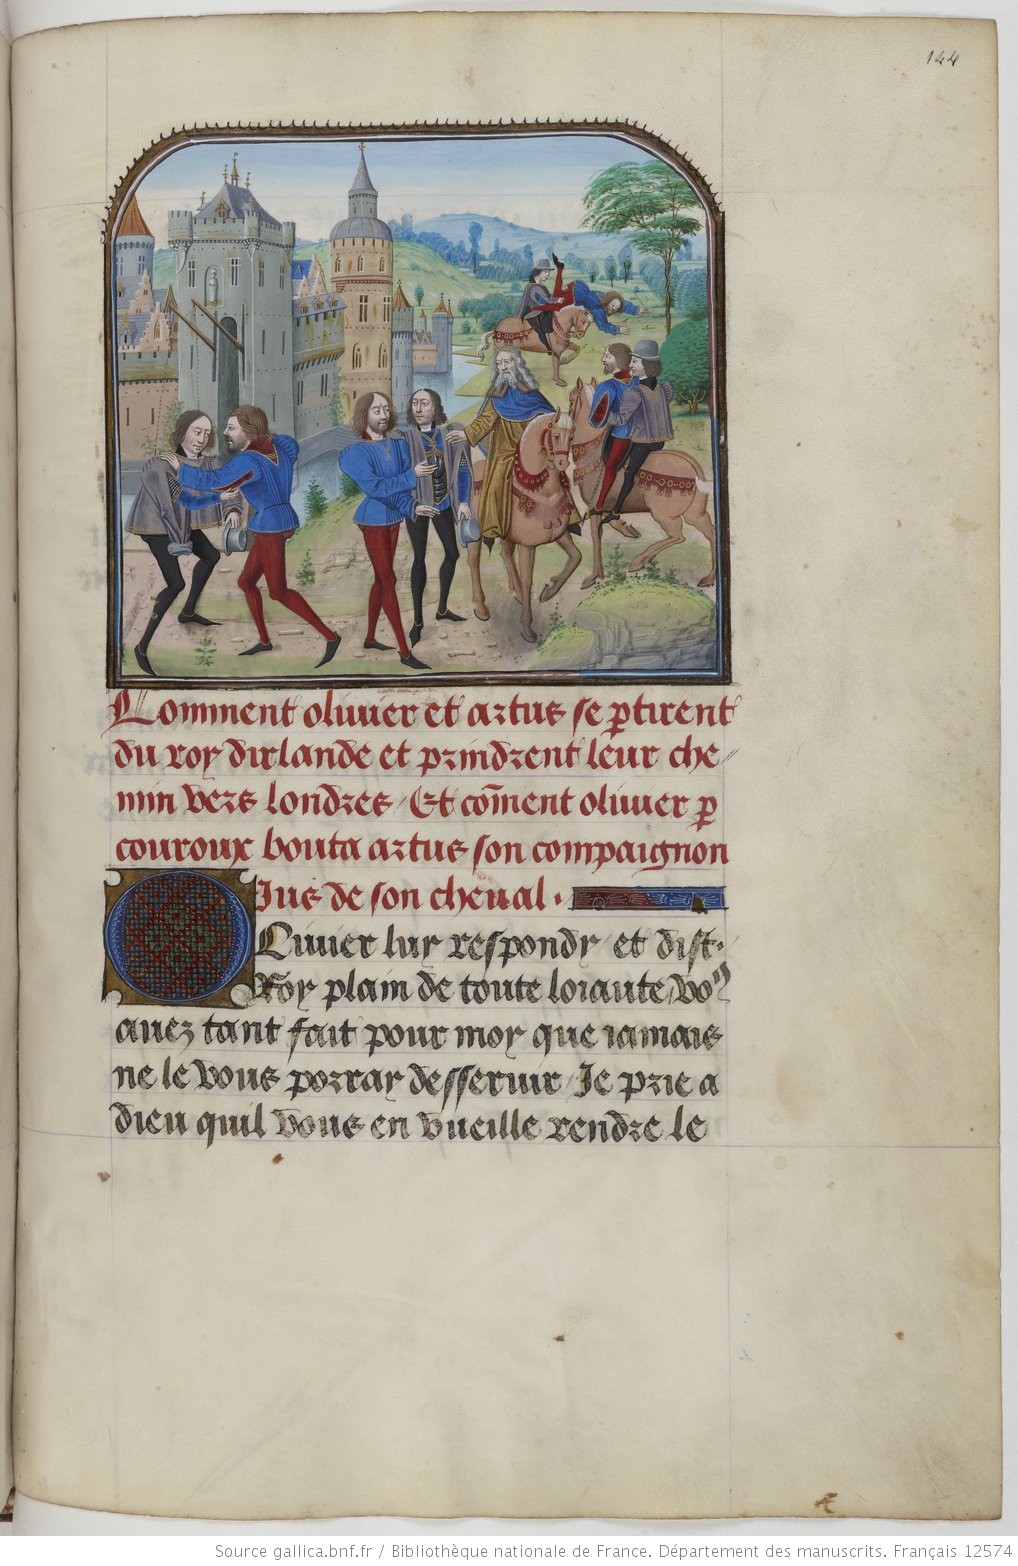 144
Comment oliuier et artus se ꝑtirent
du roy dirlande et prindrent leur che//
min vers londres / Et cõment oliuier ꝑ
couroux bouta artus son compaignon
Jus de son cheual .
Oliuier luy respondy / et dist .
Roy plain de toute loiaute / voꝰ
auez tant fait pour moy que iamais
ne le vous porray desseruir / Je prie a
dieu quil vous en vueille rendre le
Source gallica.bnf.fr / Bibliothèque nationale de France. Département des manuscrits. Français 12574